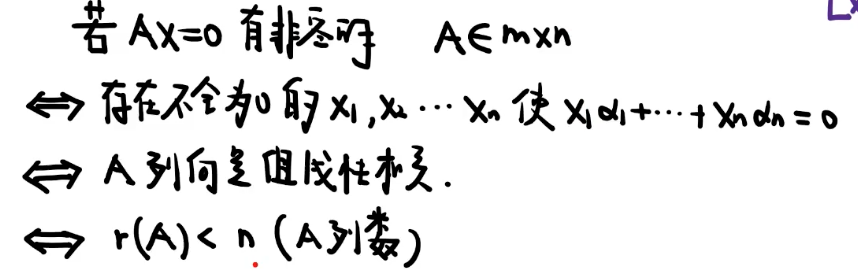 若 AX=0 有非零解 A∈m×n
⇔ 存在不全为0的 x₁,x₂…xₙ 使 x₁α₁+…+xₙαₙ=0
⇔ A列向量组线性相关.
⇔ r(A)<n (A列数)